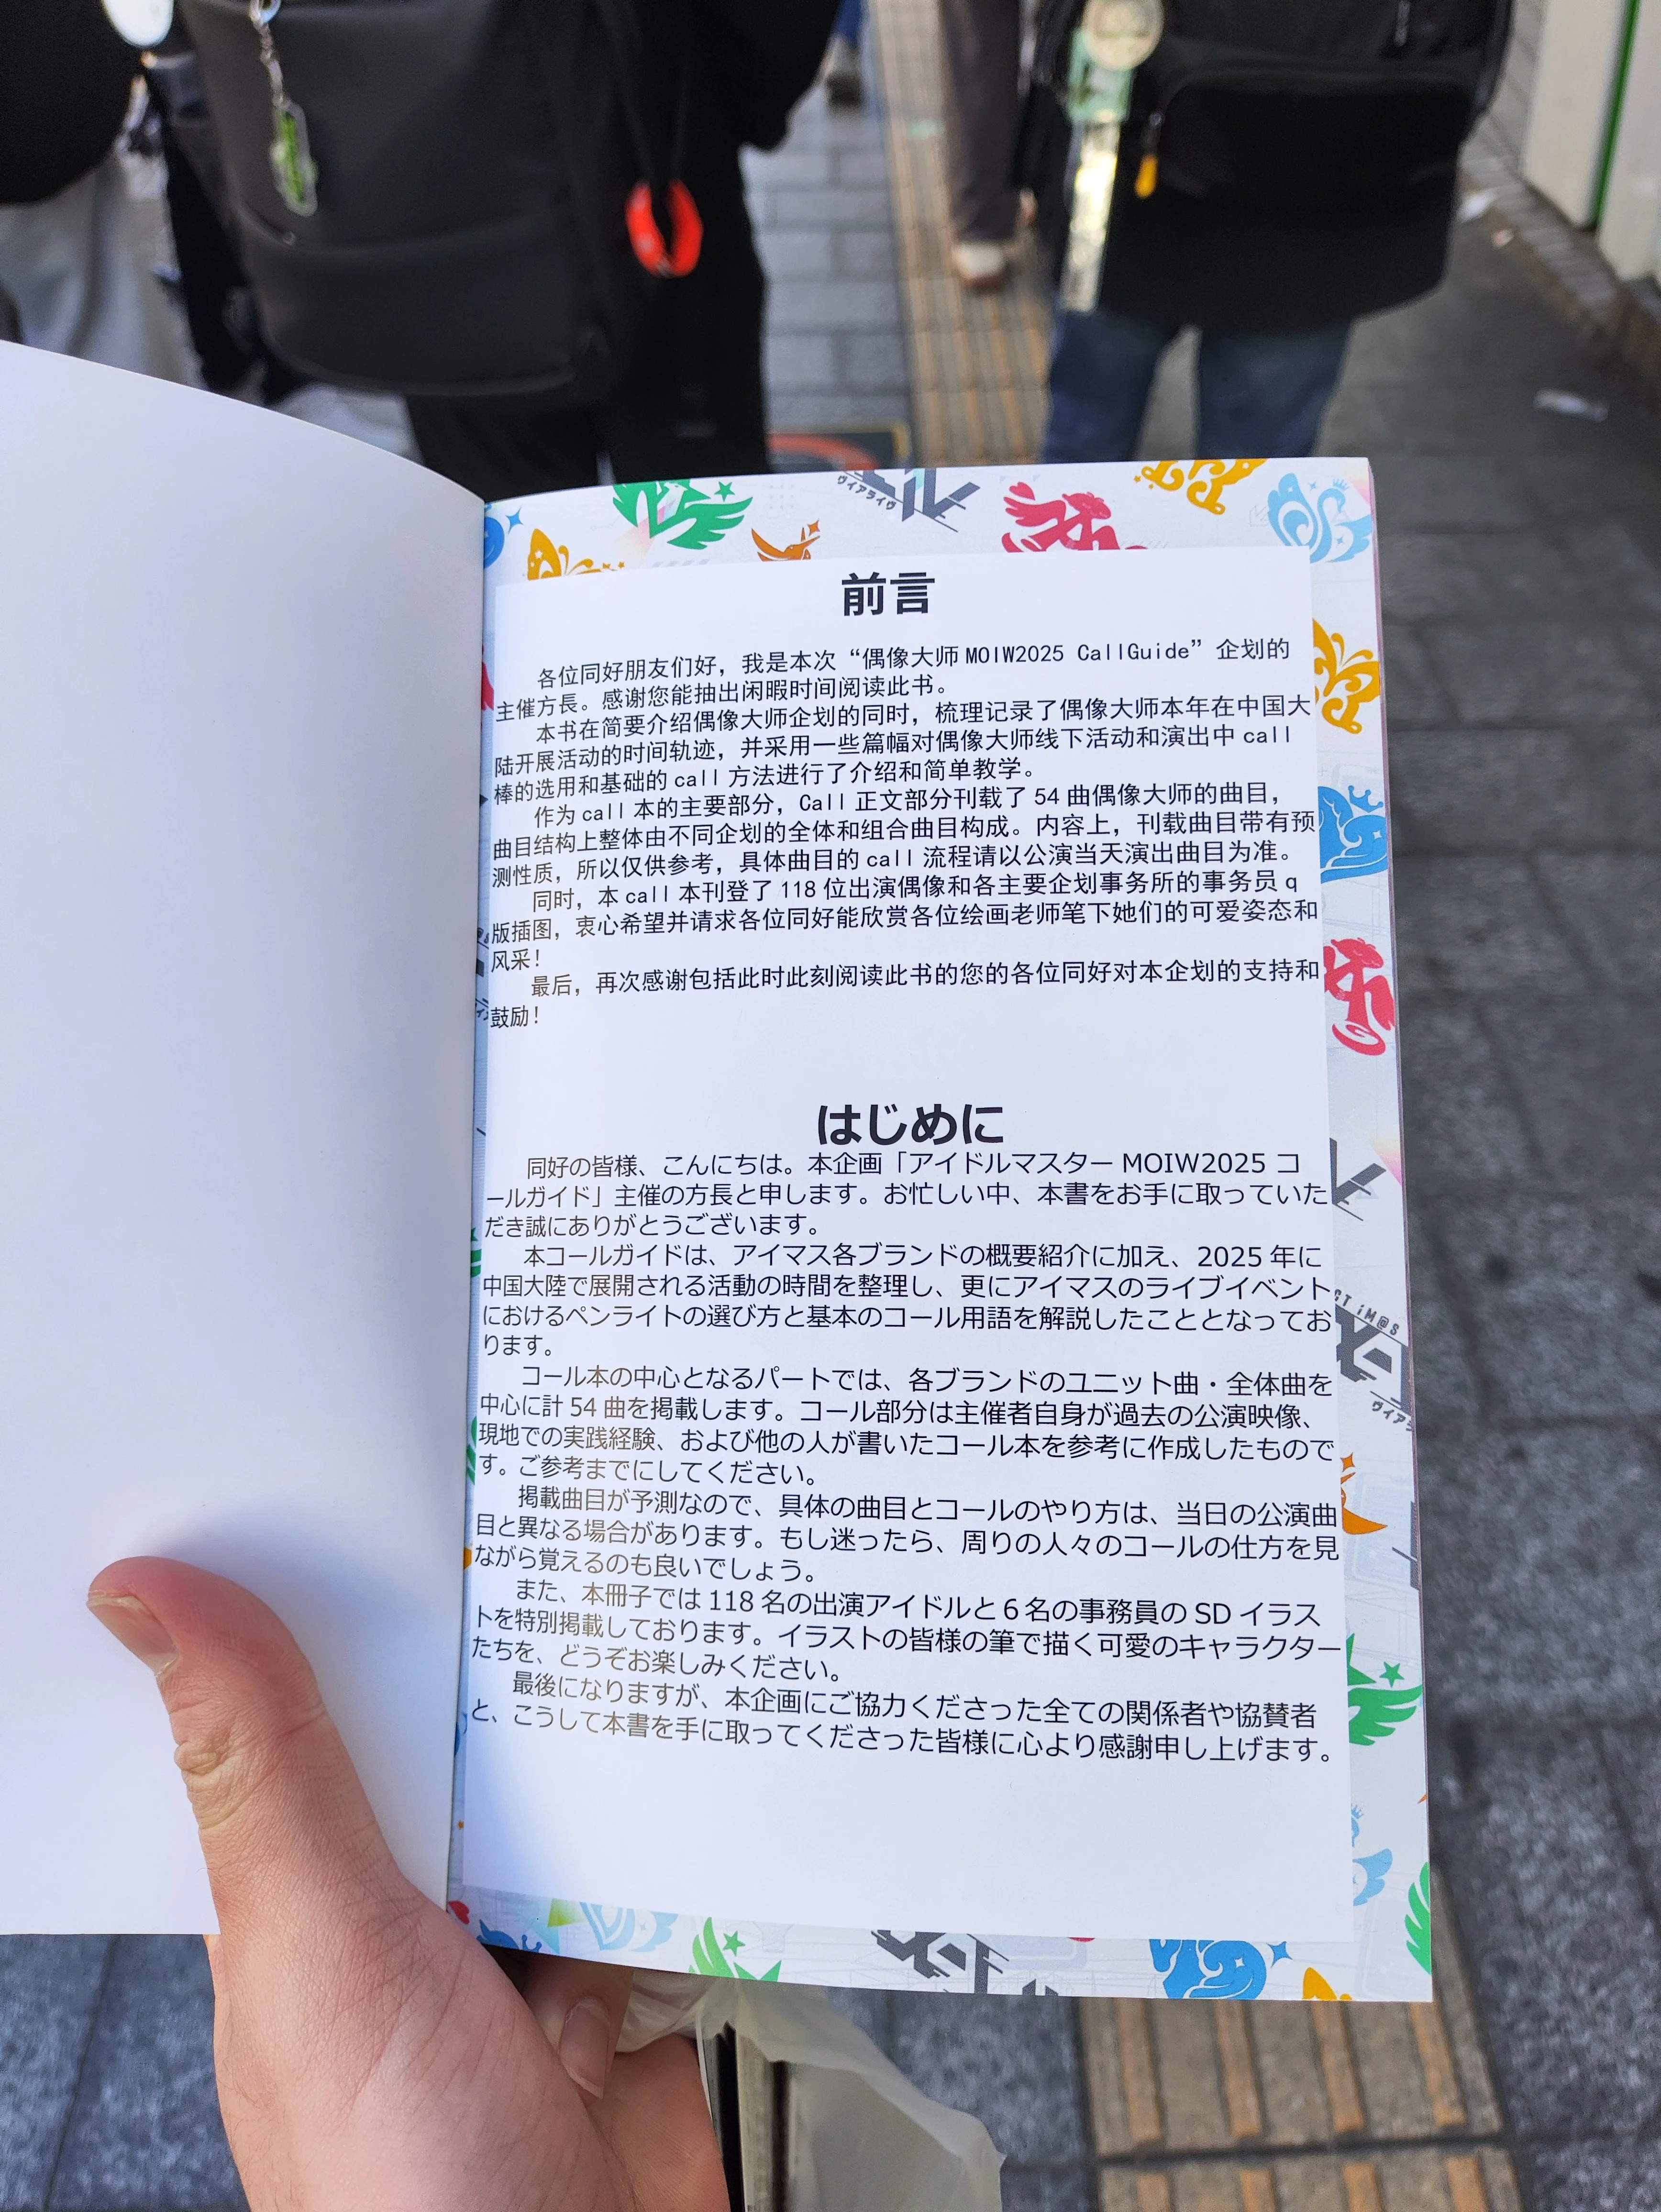 ヴィアライヴ
前言
各位同好朋友们好，我是本次“偶像大师 MOIW2025 CallGuide”企划的
主催方長。感谢您能抽出闲暇时间阅读此书。
本书在简要介绍偶像大师企划的同时，梳理记录了偶像大师本年在中国大
陆开展活动的时间轨迹，并采用一些篇幅对偶像大师线下活动和演出中 call
棒的选用和基础的 call 方法进行了介绍和简单教学。
作为 call 本的主要部分，Call 正文部分刊载了 54 曲偶像大师的曲目，
曲目结构上整体由不同企划的全体和组合曲目构成。内容上，刊载曲目带有预
测性质，所以仅供参考，具体曲目的 call 流程请以公演当天演出曲目为准。
同时，本 call 本刊登了 118 位出演偶像和各主要企划事务所的事务员 q
版插图，衷心希望并请求各位同好能欣赏各位绘画老师笔下她们的可爱姿态和
风采！
最后，再次感谢包括此时此刻阅读此书的您的各位同好对本企划的支持和
鼓励！
はじめに
同好の皆様、こんにちは。本企画「アイドルマスター MOIW2025 コ
ールガイド」主催の方長と申します。お忙しい中、本書をお手に取っていた
だき誠にありがとうございます。
本コールガイドは、アイマス各ブランドの概要紹介に加え、2025 年に
中国大陸で展開される活動の時間を整理し、更にアイマスのライブイベント
におけるペンライトの選び方と基本のコール用語を解説したこととなってお
ります。
コール本の中心となるパートでは、各ブランドのユニット曲・全体曲を
中心に計 54 曲を掲載します。コール部分は主催者自身が過去の公演映像、
現地での実践経験、および他の人が書いたコール本を参考に作成したもので
す。ご参考までにしてください。
掲載曲目が予測なので、具体の曲目とコールのやり方は、当日の公演曲
目と異なる場合があります。もし迷ったら、周りの人々のコールの仕方を見
ながら覚えるのも良いでしょう。
また、本冊子では 118 名の出演アイドルと６名の事務員の SD イラス
トを特別掲載しております。イラストの皆様の筆で描く可愛のキャラクター
たちを、どうぞお楽しみください。
最後になりますが、本企画にご協力くださった全ての関係者や協賛者
と、こうして本書を手に取ってくださった皆様に心より感謝申し上げます。